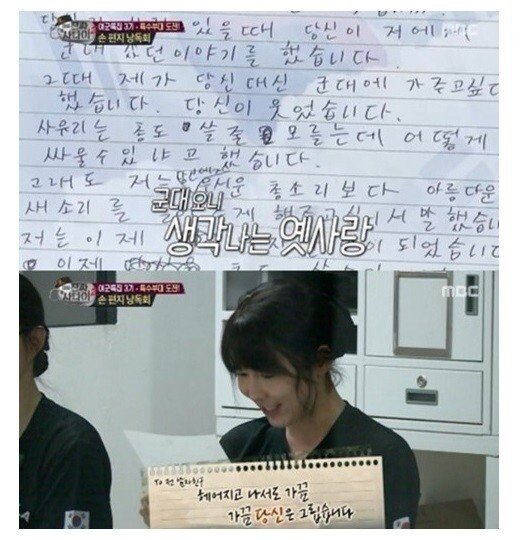 여군특집 3기 - 특수부대 도전!
손 편지 낭독회
MBC
있을때 당신이 저에게
군대 이야기를 했습니다.
그때 제가 당신대신 군대에 가주고싶다
했습니다. 당신이 웃었습니다.
사유리는 총도 쏠 줄 모르는데 어떻게
싸울수 있냐고 했습니다.
그래도 저는 총소리보다 아름다운
새소리를 말했습니
저는 이제 되었습니다
이제
군대 오니
생각나는 옛사랑
진짜
사나이
여군특집 3기 - 특수부대 도전!
손 편지 낭독회
MBC
To 전 남자친구
헤어지고 나서도 가끔
가끔 당신은 그립습니다